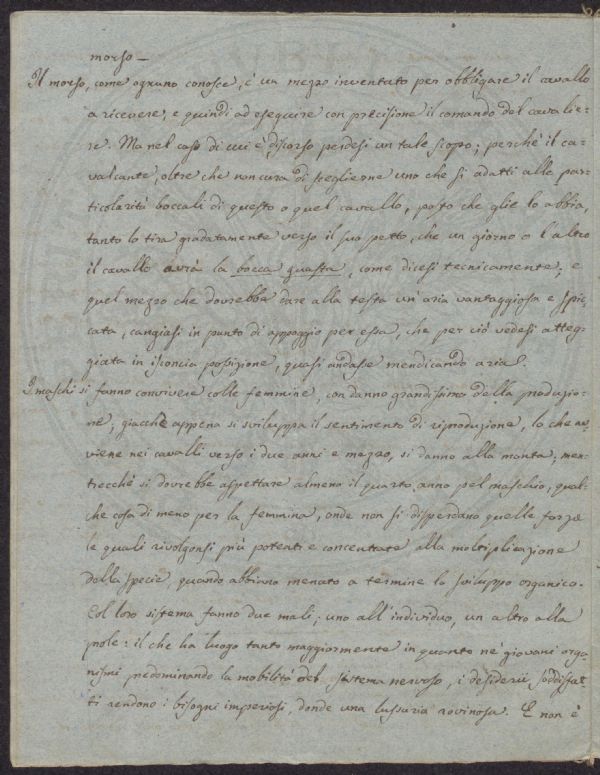 morso —
Il morso, come ognuno conosce, è un mezzo inventato per obbligare il cavallo
a ricevere, e quindi ad eseguire con precisione il comando del cavalie-
re. Ma nel caso di cui è discorso perdesi un tale scopo; perchè il ca-
valcante, oltre che non cura di sceglierne uno che si adatti alle par-
ticolarità boccali di questo o quel cavallo, posto che glie lo abbia,
tanto lo tira gradatamente verso il suo petto, che un giorno o l'altro
il cavallo avrà la bocca guasta, come dicesi tecnicamente; e
quel mezzo che dovrebbe dare alla testa un'aria vantaggiosa e spic-
cata, cangiasi in punto di appoggio per essa, che per ciò vedesi atteg-
giata in isconcia posizione, quasi andasse mendicando aria.
I maschi si fanno convivere colle femmine, con danno grandissimo della produzio-
ne; giacchè appena si sviluppa il sentimento di riproduzione, lo che av-
viene nei cavalli verso i due anni e mezzo, si danno alla monta; men-
trecchè si dovrebbe aspettare almeno il quarto anno pel maschio, qual-
che cosa di meno per la femmina, onde non si disperdano quelle forze
le quali rivolgonsi più potenti e concentrate alla moltiplicazione
della specie, quando abbiano menato a termine lo sviluppo organico.
Col loro sistema fanno due mali; uno all'individuo, un altro alla
prole: il che ha luogo tanto maggiormente in quanto ne' giovani orga-
nismi predominando la mobilità del sistema nervoso, i desiderii soddisfat-
ti rendono i bisogni imperiosi, donde una lussuria rovinosa. E non è